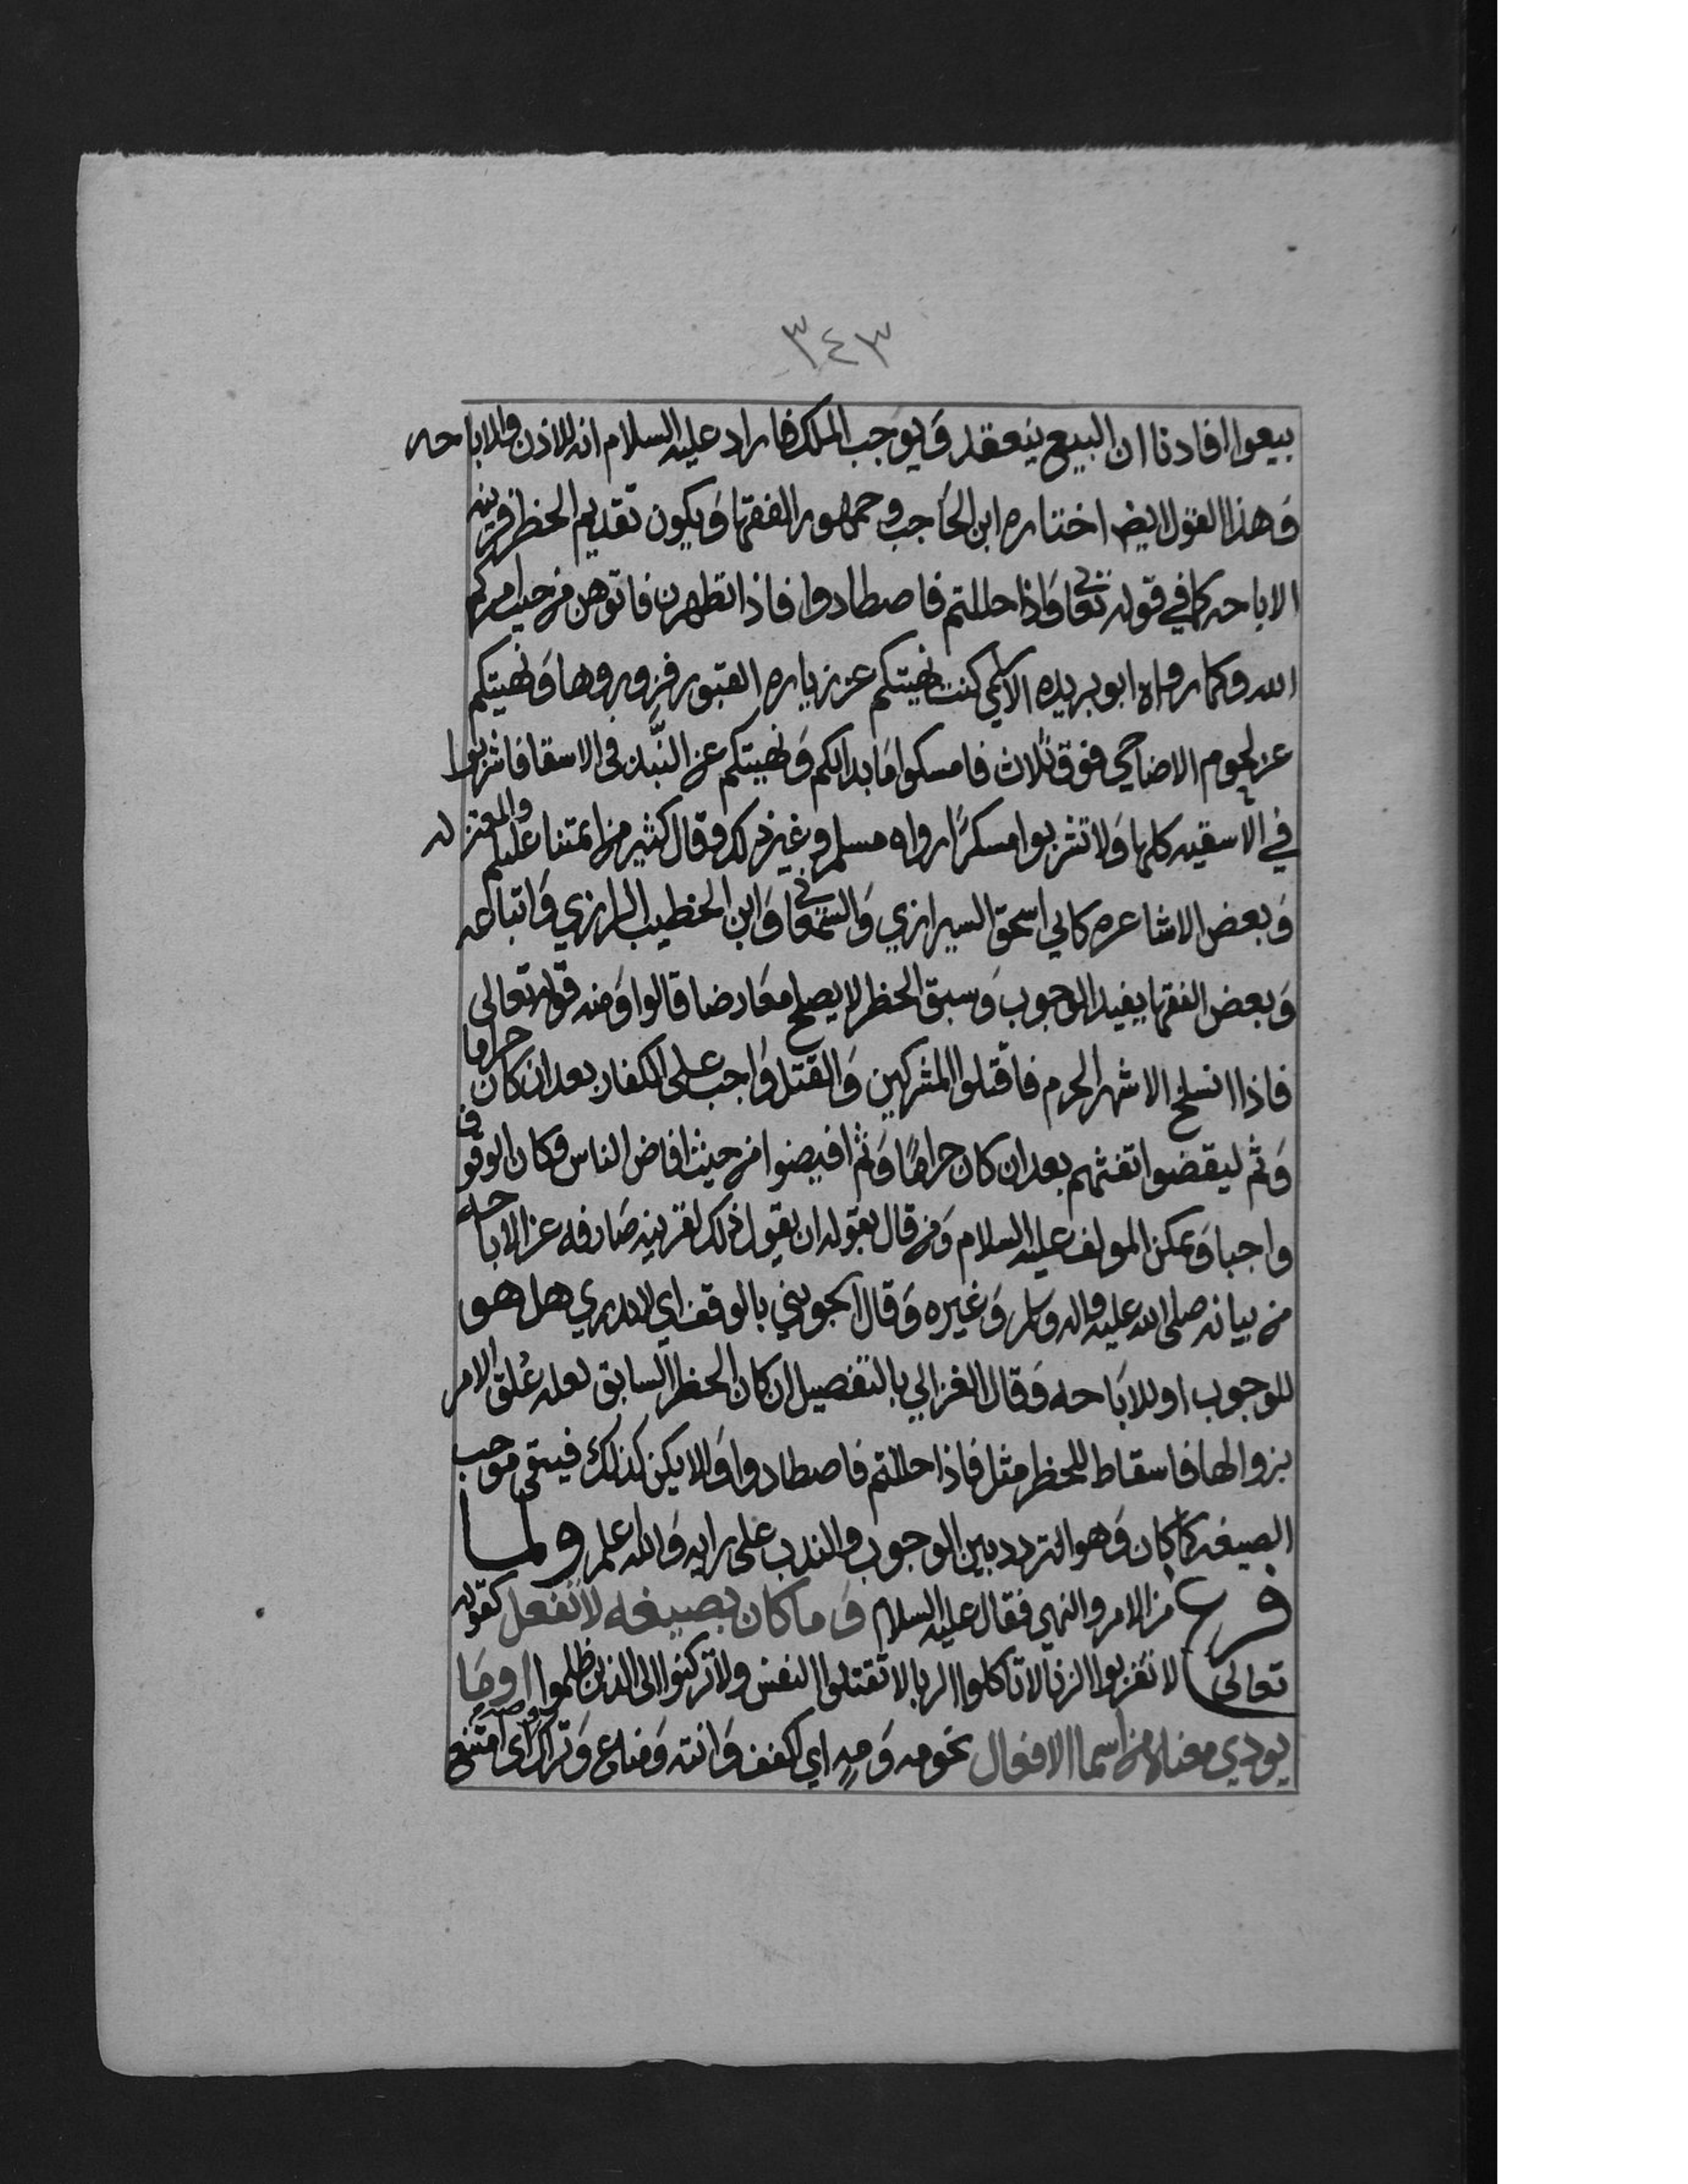 ٣٤٣
بيعوا افادنا ان البيع ينعقد وَيوجب الملك فاراد عليه السلام انه للاذن والاباحه
وَهذا القول ايضا اختاره ابن الحَاجب وجمهور الفقها وَيكون تقديم الحظر قرينه
الاباحه كما في قوله تعالى وَاذا حللتم فاصطادوا فاذا تطهرن فاتوهن من حيث امركم
الله وكما رواه ابو بريده الاسلمي كنت نهيتكم عن زياره القبور فزوروها وَنهيتكم
عن لحوم الاضاحي فوق ثلاث فامسكوا مَا بدا لكم وَنهيتكم عن النبيذ في الاسقا فاشربوا
في الاسقيه كلها وَلا تشربوا مسكرًا رواه مسلم وغير ذلك وقال كثير من ائمتنا عليلم والمعتزله
وَبعض الاشاعره كابي اسحق السيرازي وَالسمعاني وَابن الخطيب الرازي وَاتباعه
وَبعض الفقها يفيد الوجوب وَسبق الحظر لا يصلح معَارضا قالوا وَمنه قوله تعالى
فاذا انسلخ الاشهر الحرم فاقتلوا المشركين وَالقتل وَاجب على الكفار بعد ان كان حراما
وَثم ليقضوا تفثهم بعد ان كان حرامًا وَثم افيضوا من حيث افاض الناس وكان الوقوف
واجبا وَيمكن المولف عليه السلام وَمن قال بقوله ان يقول ذلك لقرينه صَارفه عن الاباحه
من بيانه صلى الله عليه واله وسلم وَغيره وَقال الجويني بالوقف اي لا ندري هل هو
للوجوب او للابَاحه وَقال الغزالي بالتفصيل ان كان الحظر السابق لعله عُلق الامر
بزوالها فاسقاط للحظر مثل فاذا حللتم فاصطادوا وَالا يكن كذلك فيبقى موجب
الصيغه كما كان وَهو التردد بين الوجوب والندب على رايه وَالله اعلم ولما
فرغ من الامر والنهي فقال عليه السلام وَما كان بصيغه لا تفعل كقوله
تعالى لا تقربوا الزنا لا تاكلوا الربا لا تقتلوا النفس ولا تركنوا الى الذين ظلموا او مَا
يودي معناه من اسما الافعال نحو مه وَصهٍ اي اكفف وَانته وَمناع وَتراك اى امتنع